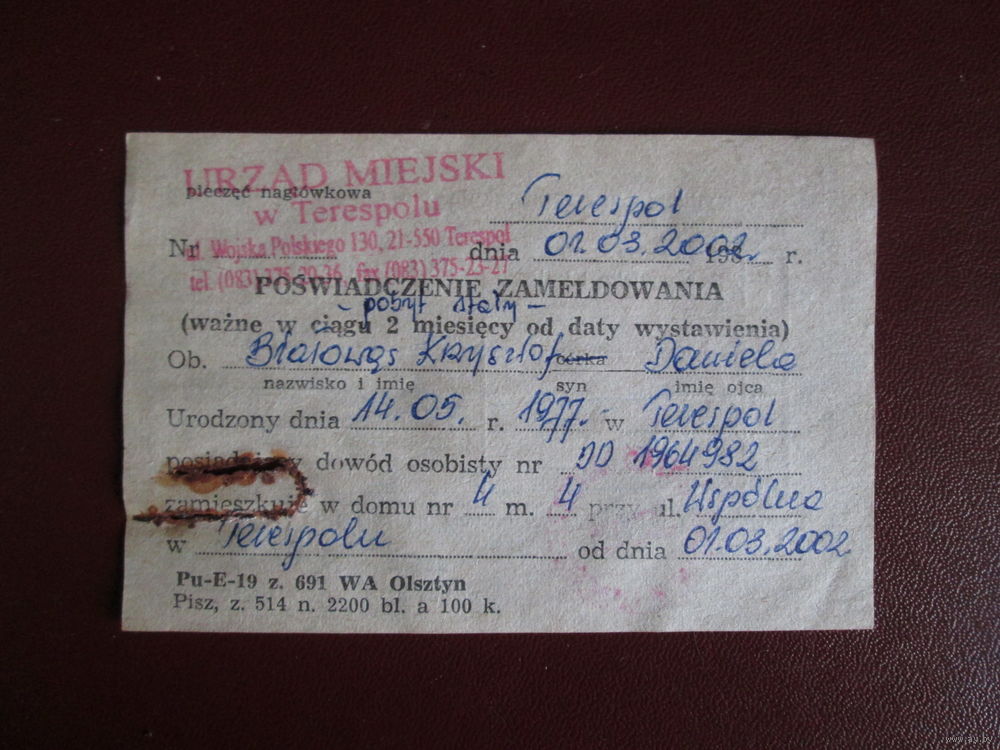 URZĄD MIEJSKI
pieczęć nagłówkowa
w Terespolu
Terespol
ul. Wojska Polskiego 130, 21-550 Terespol
Nr dnia 01.03.2002 198 r.
tel. (083) 375-20-36, fax (083) 375-23-27
POŚWIADCZENIE ZAMELDOWANIA
- pobyt stały -
(ważne w ciągu 2 miesięcy od daty wystawienia)
Ob. Białowąs Krzysztof córka Daniela
nazwisko i imię syn imię ojca
Urodzony dnia 14.05. r. 1977. w Terespol
posiadający dowód osobisty nr DD 1964982
zamieszkuje w domu nr 4 m. 4 przy ul. Wspólna
w Terespolu od dnia 01.03.2002
Pu-E-19 z. 691 WA Olsztyn
Pisz, z. 514 n. 2200 bl. a 100 k.
www.ay.by